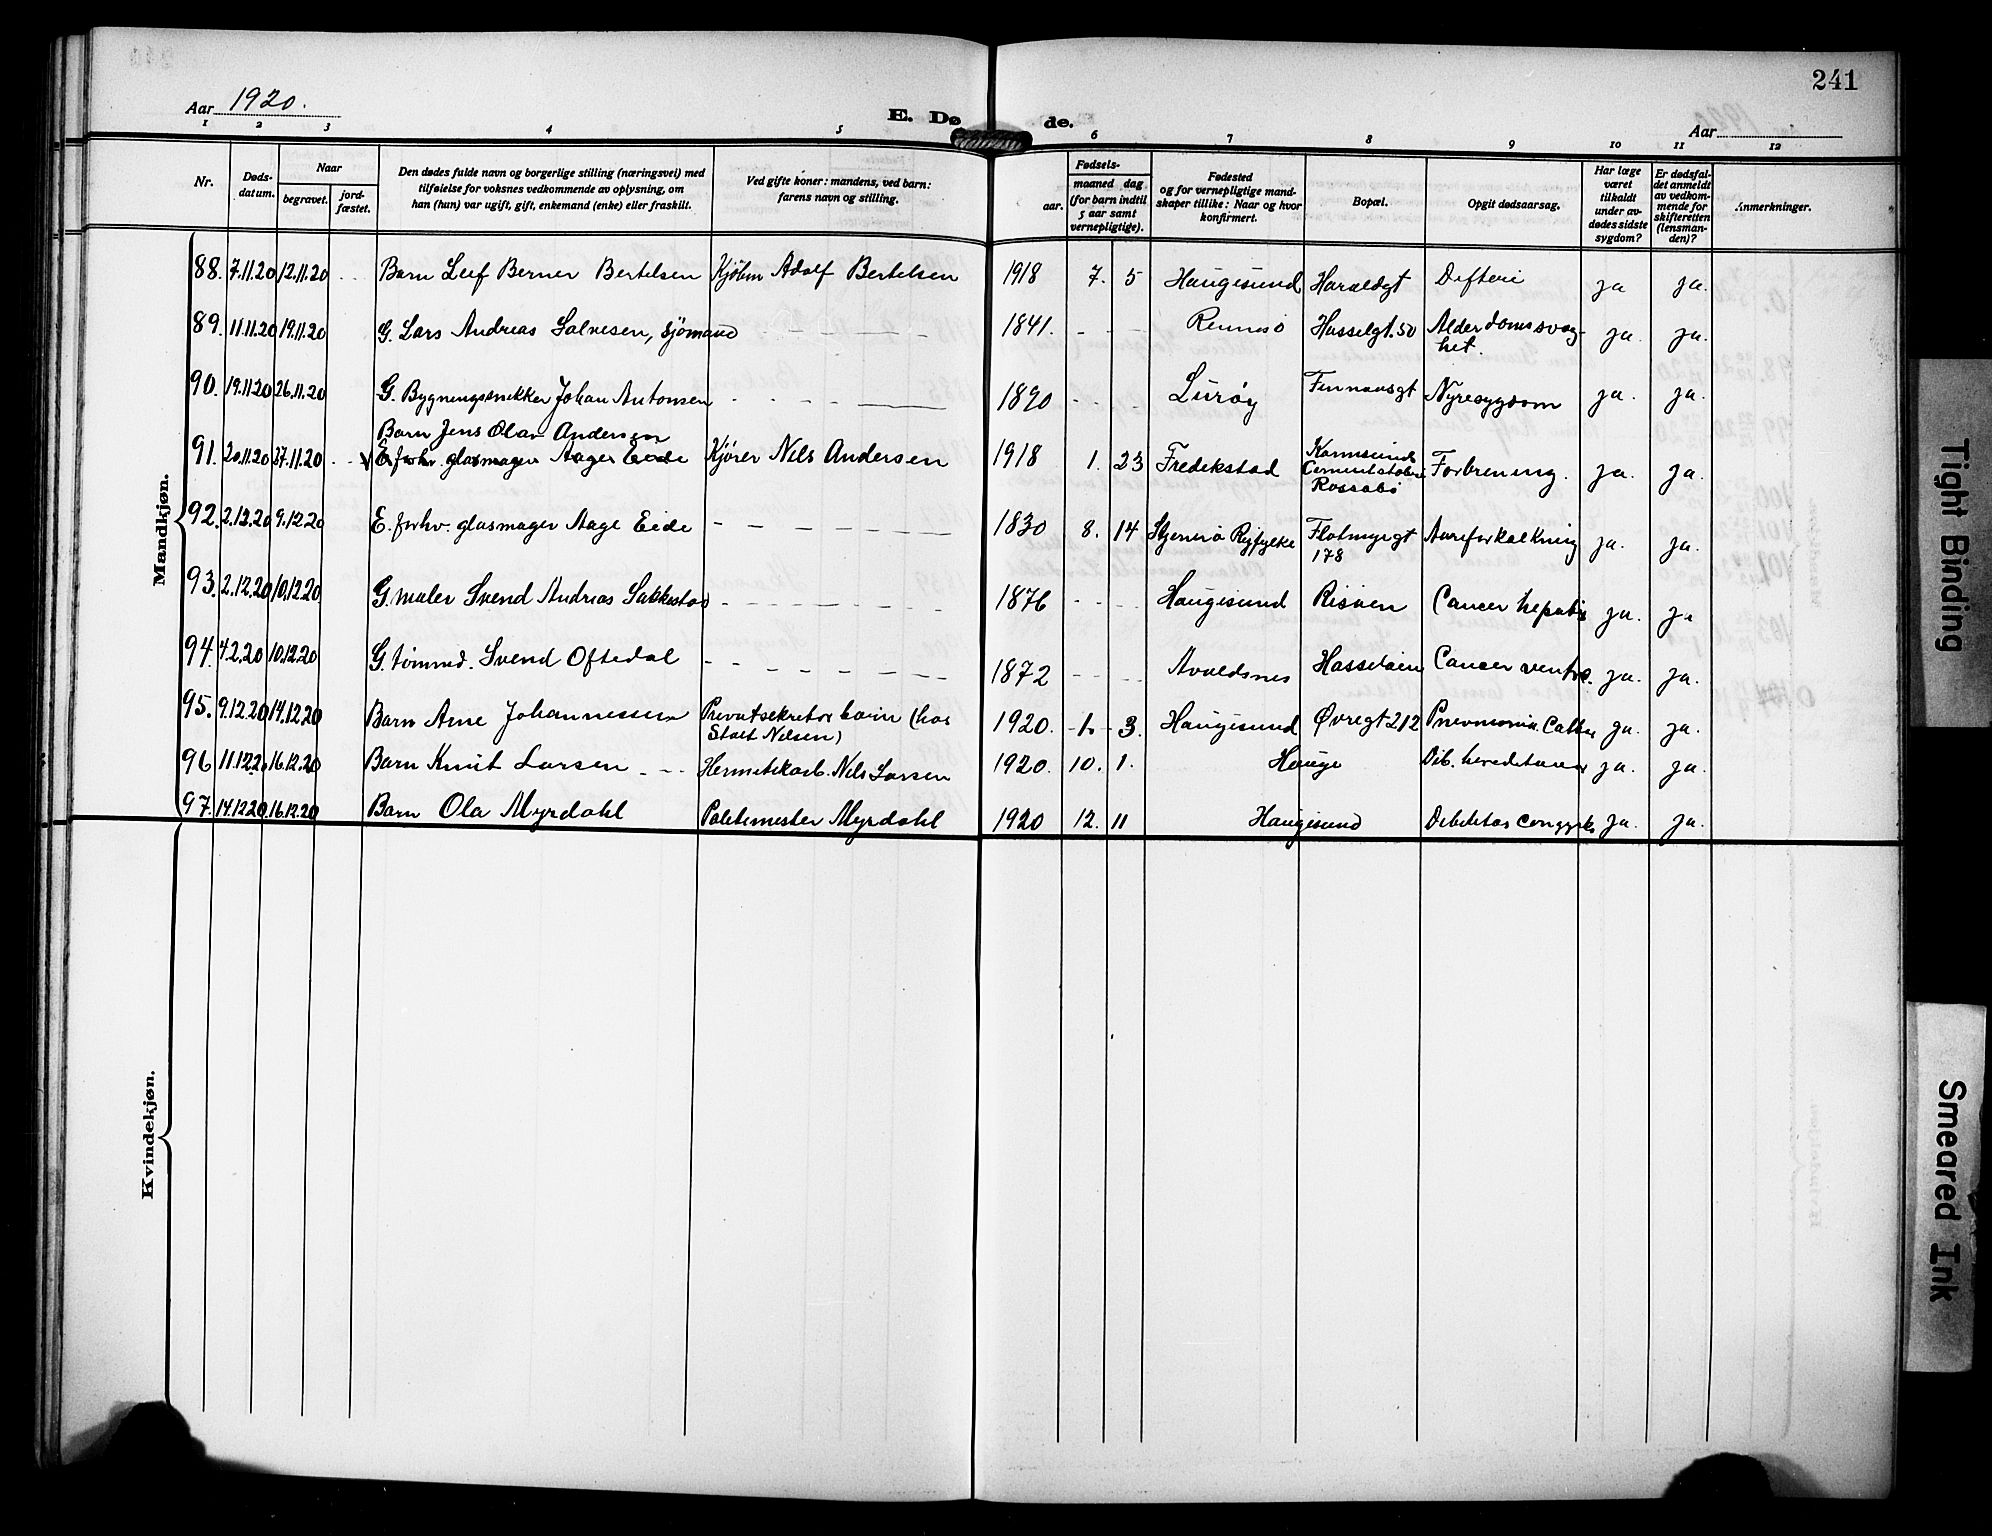 241
Aar 1920.
E. Dø de.
Aar
1 2 3 4 5 6 7 8 9 10 11 12
Nr.
Døds-
datum.
Naar
begravet.
jord-
fæstet.
Den dødes fulde navn og borgerlige stilling (næringsvei) med
tilføielse for voksnes vedkommende av oplysning, om
han (hun) var ugift, gift, enkemand (enke) eller fraskilt.
Ved gifte koner: mandens, ved barn:
farens navn og stilling.
Fødsels-
aar.
maaned dag
(for barn indtil
5 aar samt
vernepligtige).
Fødested
og for vernepligtige mand-
skaper tillike: Naar og hvor
konfirmert.
Bopæl.
Opgit dødsaarsag.
Har læge
været
tilkaldt
under av-
dødes sidste
sygdom?
Er dødsfal-
det anmeldt
av vedkom-
mende for
skifteretten
(lensman-
den)?
Anmerkninger.
Mandkjøn.
88. 7.11.20 12.11.20 Barn Leif Berner Bertelsen Kjøbm Adolf Bertelsen 1918 7. 5 Haugesund Haraldgt Difteri ja ja.
89. 11.11.20 19.11.20 G. Lars Andreas Salvesen, sjömand 1841. Rennesö Hasselgt. 50 Alderdomssvag-
het. ja. ja.
90. 19.11.20 26.11.20 G. Bygningssnikker Johan Antonsen 1890 Lurøy Finnaasgt Nyresygdom ja. ja.
Barn Jens Olav Andersen
91. 20.11.20 27.11.20 E. forhv. glasmager Aage Eide Kjører Nils Andersen 1918 1. 23 Fredrikstad Karmsund
Cementstöberi
Rossabö Forbrenning. ja. ja.
92. 2.12.20 9.12.20 E. forhv. glasmager Aage Eide 1830 8. 14 Stjernerö Ryfylke Flotmyrgt
178 Aareforkalkning ja. ja.
93. 2.12.20 10.12.20 G. maler Svend Andreas Sakkestad 1876 Haugesund Risöen Cancer hepatis ja. ja
94. 4.2.20 10.12.20 G. tömmd. Svend Oftedal 1872 Avaldsnes Hasseløen Cancer ventr. ja. ja.
95. 9.12.20 14.12.20 Barn Arne Johannessen Privatsekretær (hos
Stolt Nilsen) 1920. 1. 3. Haugesund Øvregt 212 Pneumonia Cattar ja. ja.
96 11.12.20 16.12.20 Barn Knut Larsen Hermetikarb. Nils Larsen 1920. 10. 1. Hauge Deb. hereditaria ja. ja.
97. 14.12.20 16.12.20 Barn Ola Myrdahl Politimester Myrdahl 1920 12. 11 Haugesund Debilitas congen. ja. ja.
Kvindekjøn.
Tight Binding
Smeared Ink